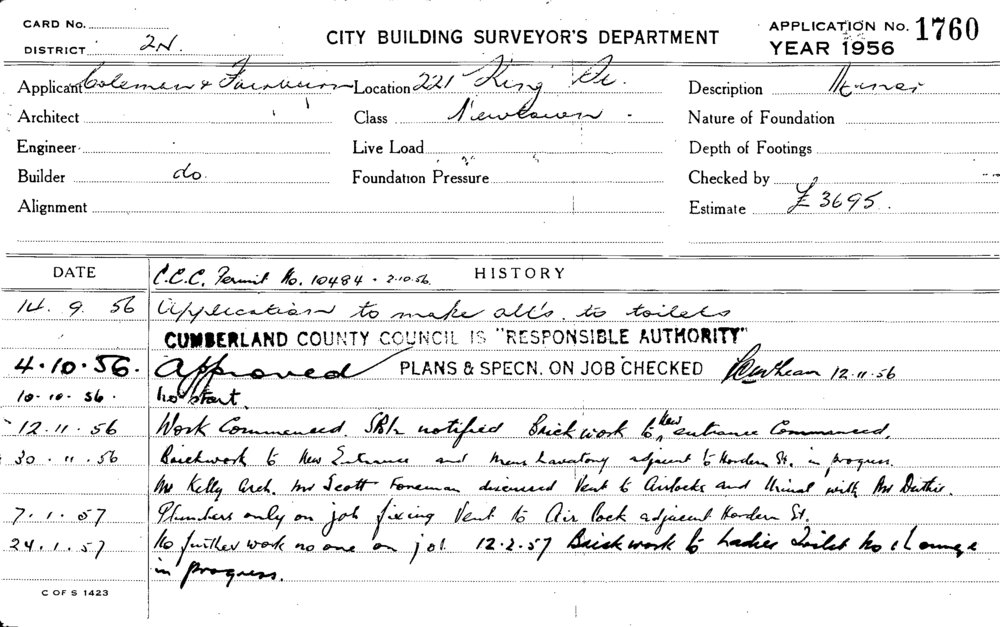 CARD No.
DISTRICT 2N.
CITY BUILDING SURVEYOR'S DEPARTMENT
APPLICATION No. 1760
YEAR 1956
Applicant Coleman & Fairburn Location 221 King St. Description
Architect Class Newtown Nature of Foundation
Engineer Live Load Depth of Footings
Builder do. Foundation Pressure Checked by
Alignment Estimate £3695.
DATE C.C.C. Permit No. 10484 - 2.10.56. HISTORY
14. 9. 56 Application to make alt's. to toilets
CUMBERLAND COUNTY COUNCIL IS "RESPONSIBLE AUTHORITY"
4.10.56. Approved PLANS & SPECN. ON JOB CHECKED 12.11.56
10.10.56. No start.
12.11.56 Work Commenced notified Brickwork to New entrance Commenced.
30.11.56 Brickwork to New Entrance and Mens Lavatory adjacent to Hordern St. in progress.
Mr Kelly Arch. Mr Scott Foreman discussed Vent to Airlocks and Urinal with Mr
7.1.57 Plumbers only on job fixing Vent to Air lock adjacent Hordern St.
24.1.57 No further work no one on job 12.2.57 Brickwork to Ladies Toilet & Lounge
in progress.
C OF S 1423